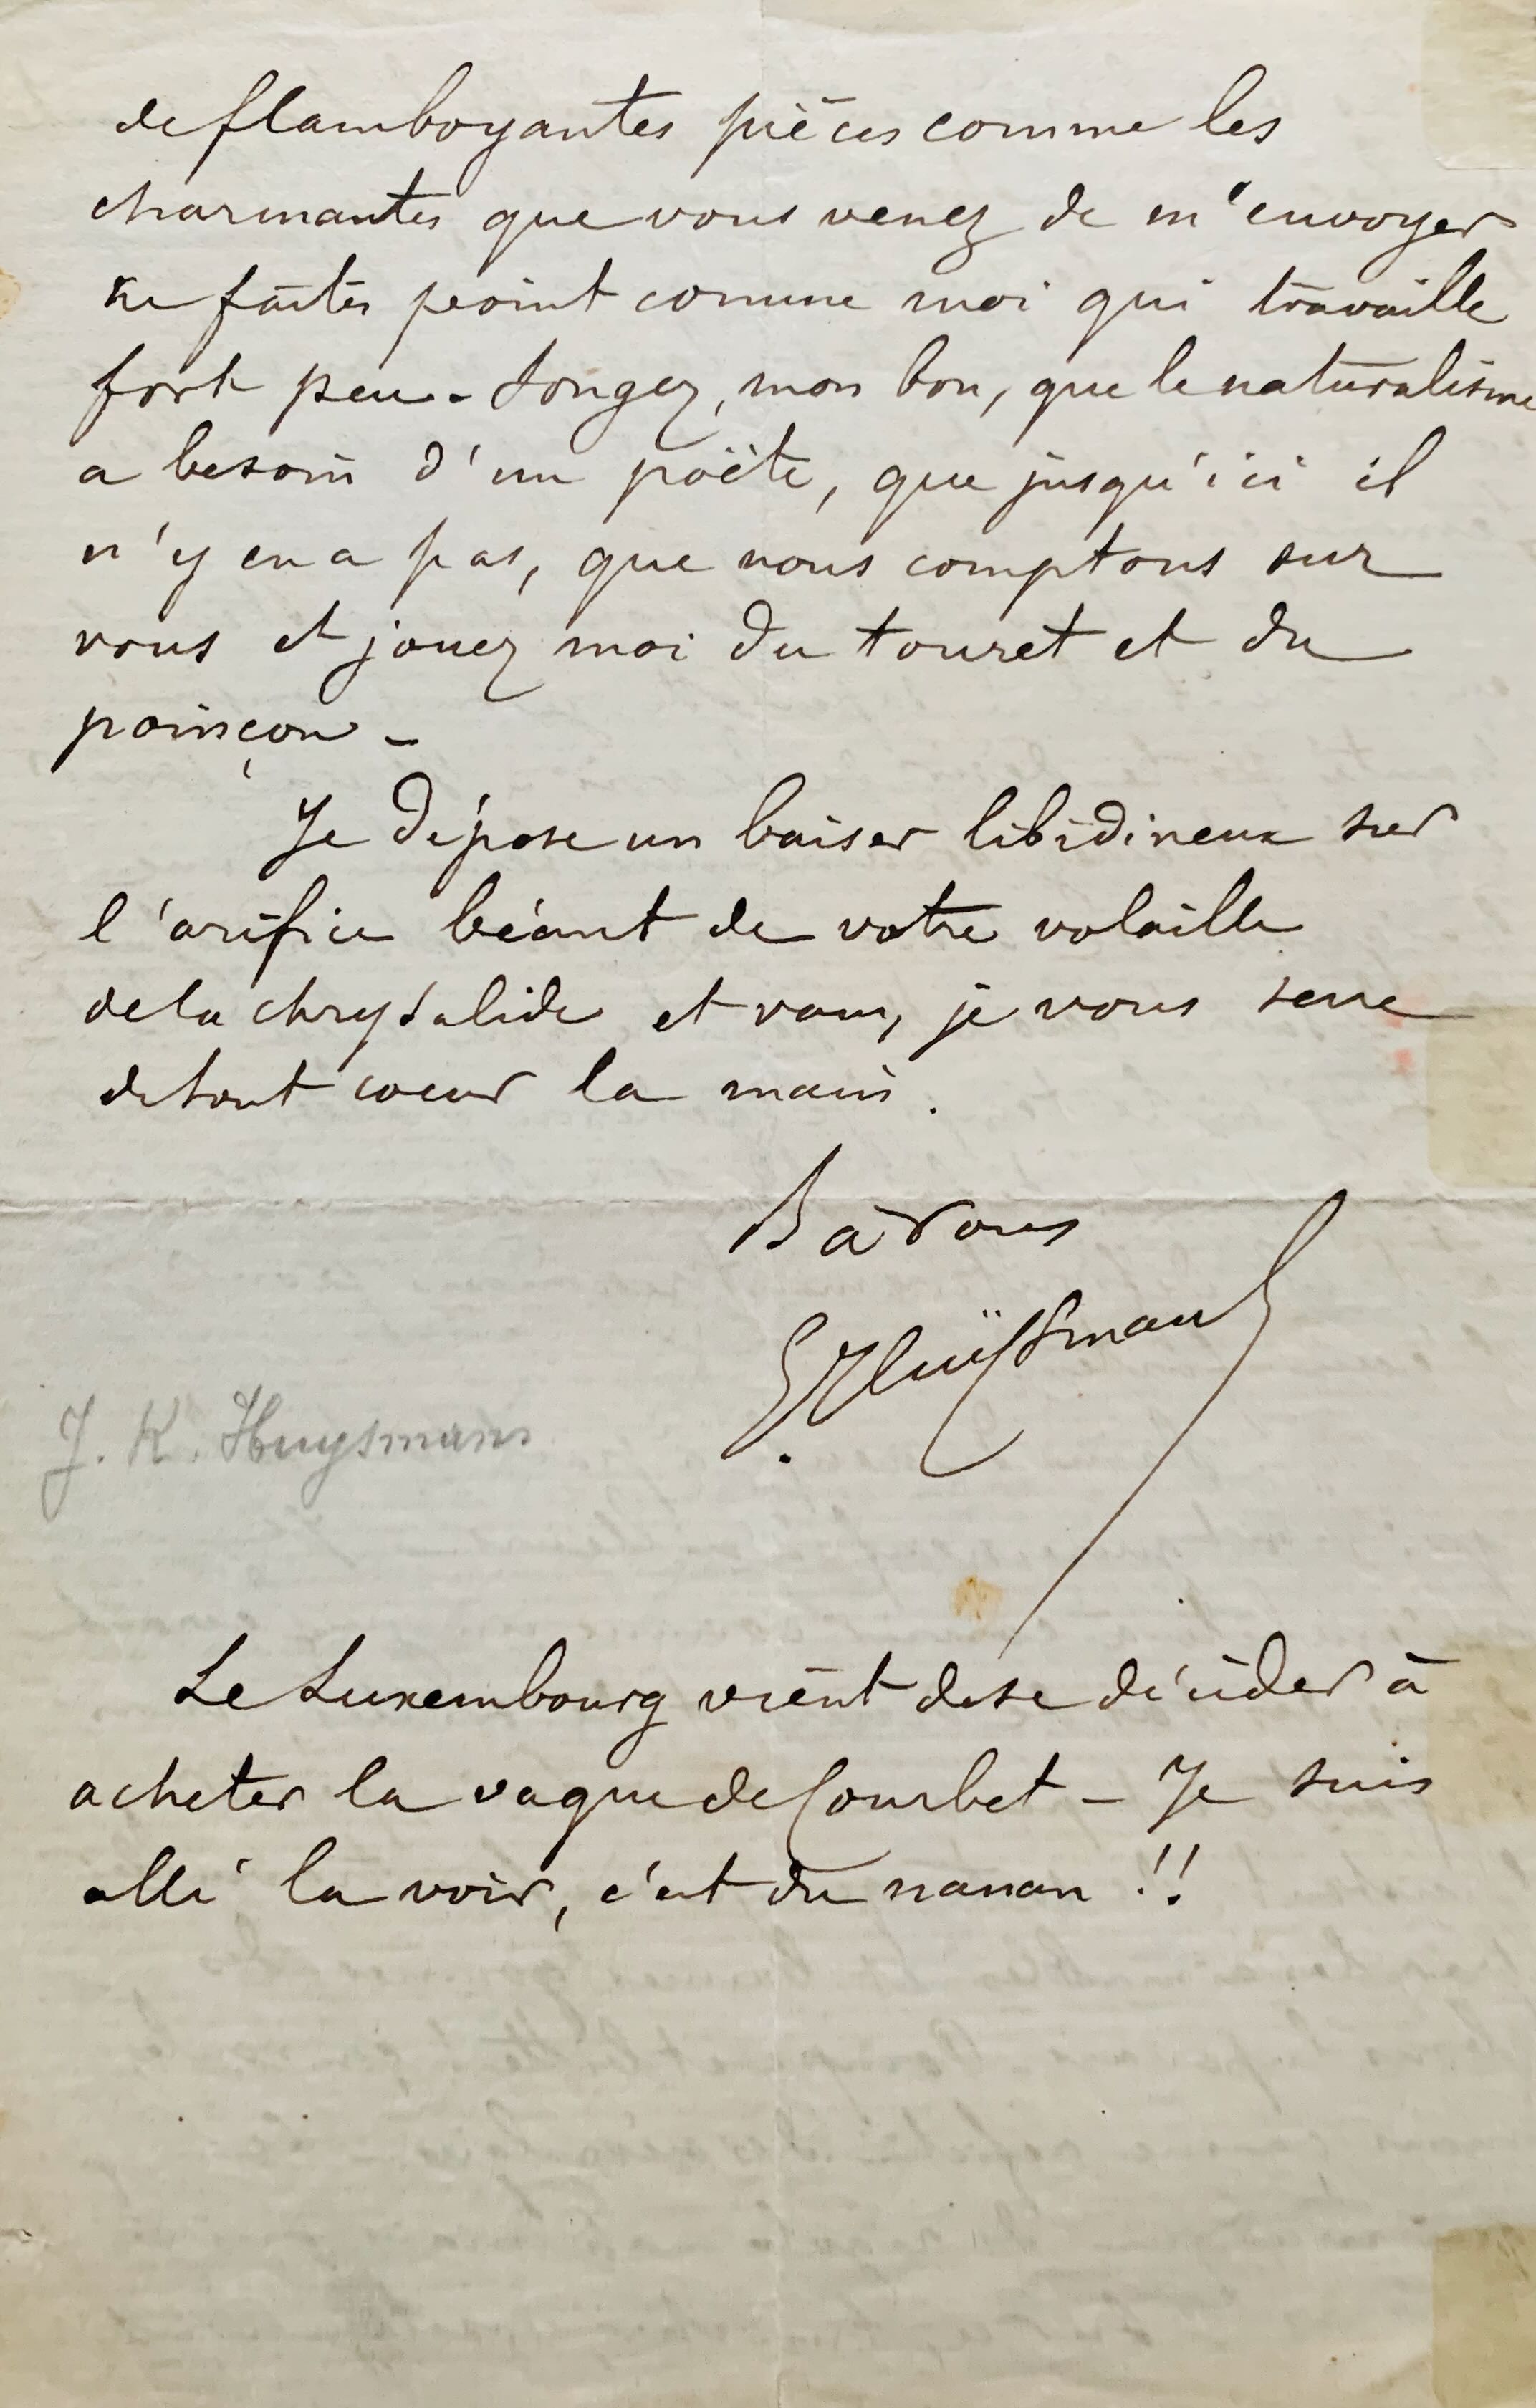 de flamboyantes pièces comme les
charmantes que vous venez de m'envoyer
ne faites point comme moi qui travaille
fort peu - Songez, mon bon, que le naturalisme
a besoin d'un poëte, que jusqu'ici il
n'y en a pas, que nous comptons sur
vous et jouez moi du touret et du
poinçon -
Je dépose un baiser libidineux sur
l'orifice béant de votre volaille
de la chrysalide et vous, je vous serre
de tout coeur la main.
B à vous
G. Huÿsmans
J. K. Huysmans
Le Luxembourg vient de se décider à
acheter la vague de Courbet - Je suis
allé la voir, c'est du nanan !!